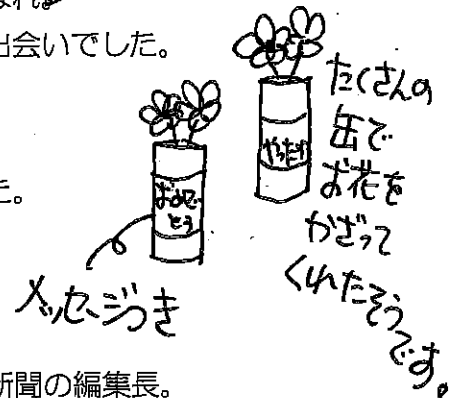 出会いでした。
た。
新聞の編集長。
おめで
とう
やったね
メッセージつき
たくさんの
缶で
お花を
かざって
くれたそう
です。